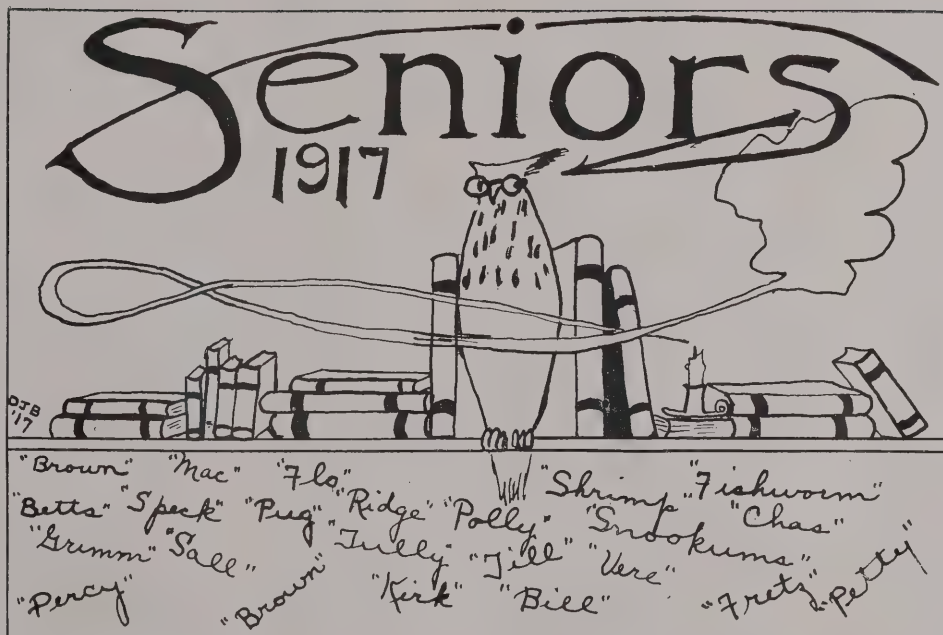 Seniors
1917
DJB
'17
"Brown" "Mac" "Flo" "Shrimp" "Fishworm"
"Betts" "Speck" "Pug" "Ridge" "Polly" "Snookums" "Chas"
"Grimm" "Sall" "Tully" "Jill" "Vere" "Petty"
"Percy" "Brown" "Kirk" "Bill" "Fretz"